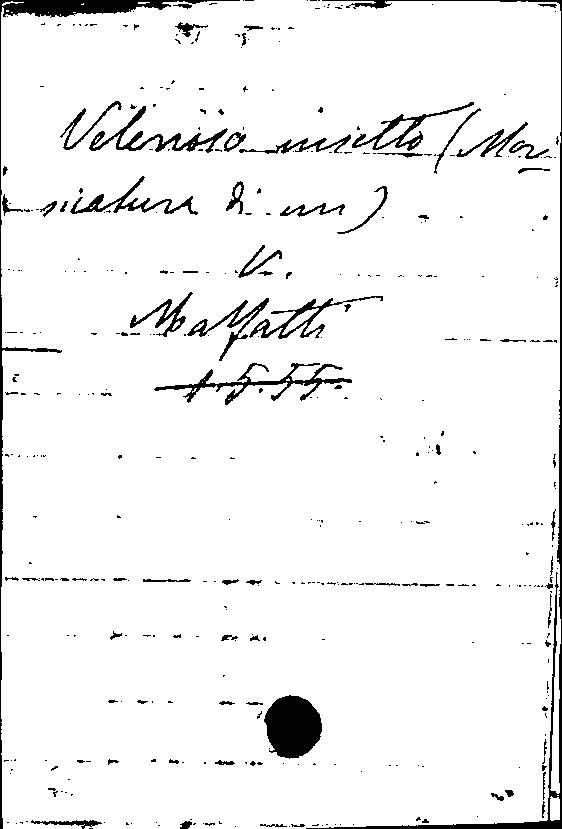 Velenoso insetto (Mor
sicatura di un)
V.
Malfatti
1.5.55.